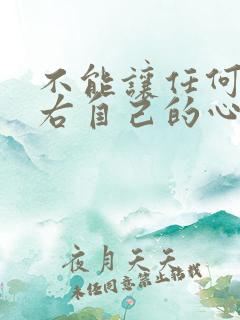 不能讓任何
右自己的心
夜月天天
未经同意禁止转载